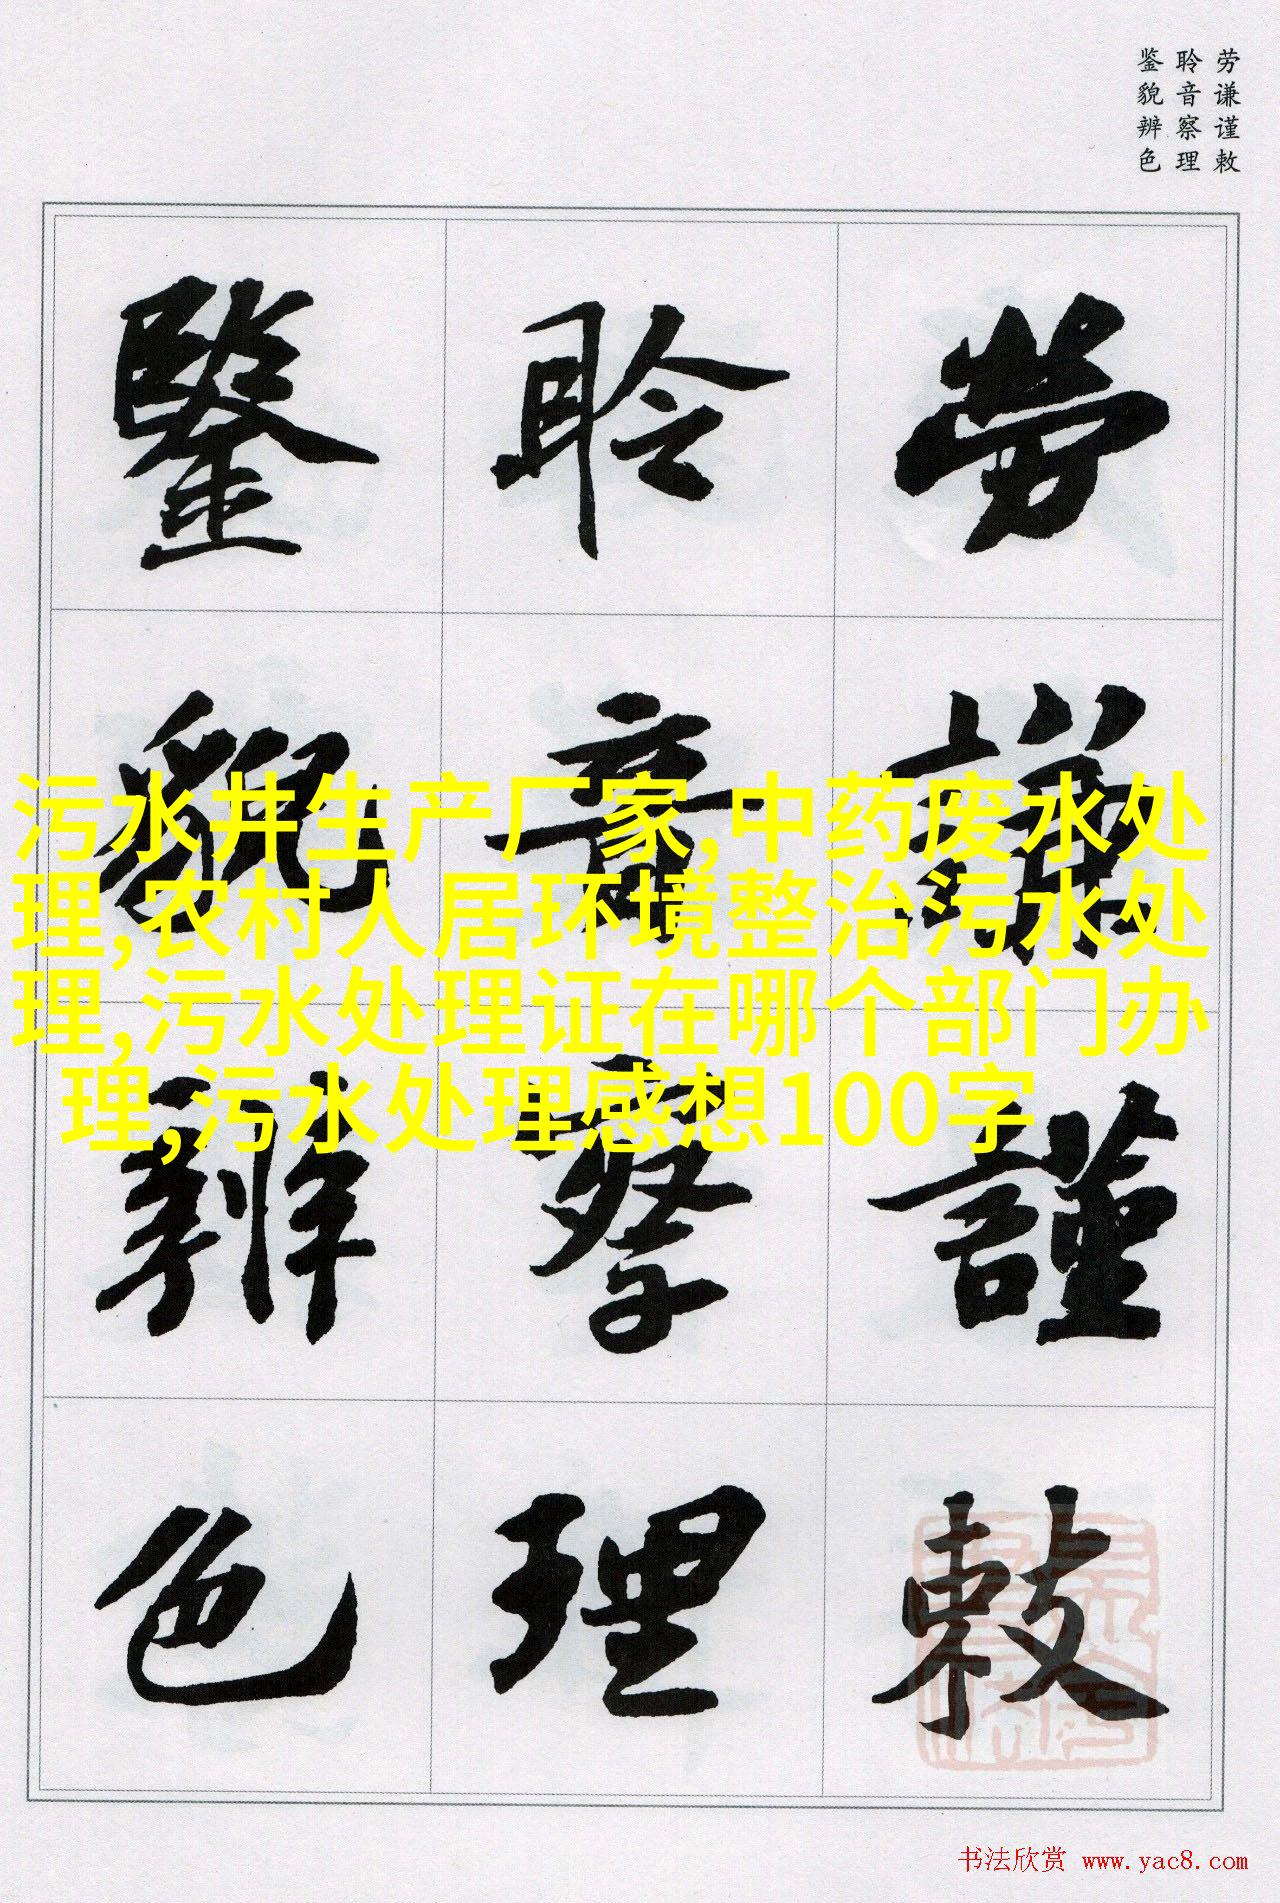 劳谦谨敕
聆音察理
鉴貌辨色
劳謙謹敕
聆音察理
鑒貌辨色
污水井生产厂家,中药废水处
理,农村人居环境整治污水处
理,污水处理证在哪个部门办
理,污水处理感想100字
书法欣赏 www.yac8.com